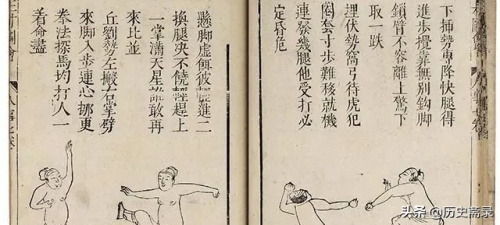 下插勢專降快腿得
進步攪靠無別鈎脚
鎖臂不容離上驚下
取一跌
埋伏勢窩弓待虎犯
圈套寸步難移就機
連發幾腿他受打必
定昏危
懸脚虛餌彼輕進二
換腿決不饒輕趕上
一掌滿天星誰敢再
來比並
丘劉勢左搬右掌劈
來脚入步連心挪更
拳法探馬均打人一
着命盡
圖會
头条 @历史斋录